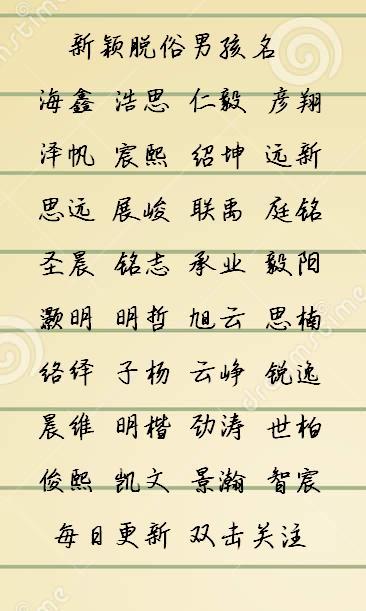 新颖脱俗男孩名
海鑫 浩思 仁毅 彦翔
泽帆 宸熙 绍坤 远新
思远 展峻 联禹 庭铭
圣晨 铭志 承业 毅阳
灏明 明哲 旭云 思楠
络绎 子杨 云峥 锐逸
晨维 明楷 劲涛 世柏
俊熙 凯文 景瀚 智宸
每日更新 双击关注
dreamstime